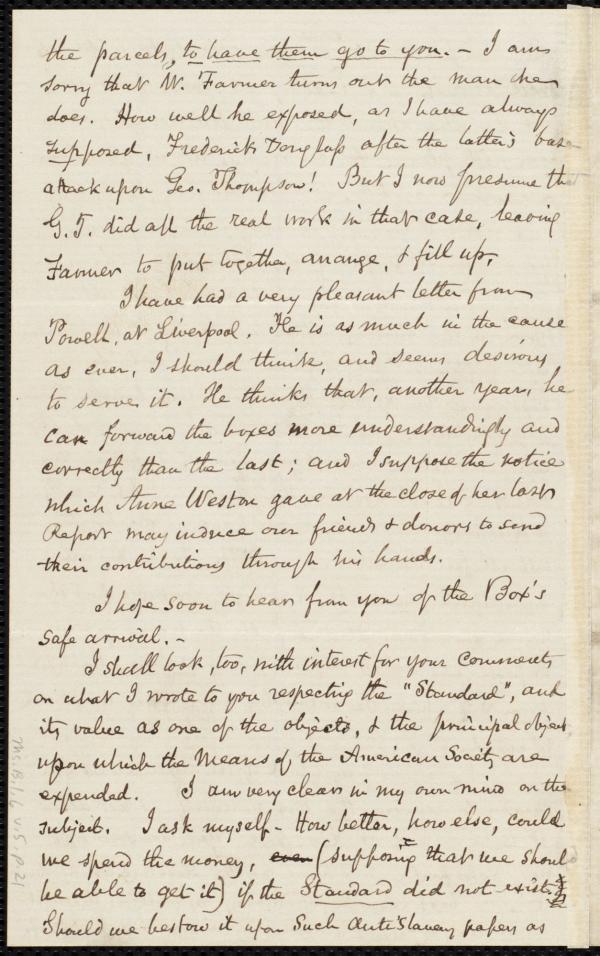 the parcels, to have them go to you. - I am
sorry that W. Farmer turns out the man he
does. How well he exposed, as I have always
supposed, Frederick Douglass after the latter's base
attack upon Geo. Thompson! But I now presume that
G. T. did all the real work in that case, leaving
Farmer to put together, arrange, & fill up.
I have had a very pleasant letter from
Powell, at Liverpool. He is as much in the cause
as ever, I should think, and seems desirous
to serve it. He thinks that, another year, he
can forward the boxes more understandingly and
correctly than the last; and I suppose the notice
which Anne Weston gave at the close of her last
Report may induce our friends & donors to send
their contributions through his hands.
I hope soon to hear from you of the Box's
safe arrival. -
I shall look, too, with interest for your comments
on what I wrote to you respecting the "Standard", and
its value as one of the objects, & the principal object
upon which the Means of the American Society are
expended. I am very clear in my own mind on the
subject. I ask myself - How better, how else, could
we spend the money, even (supposing that we should
be able to get it) if the Standard did not exist?
Should we bestow it upon such Anti Slavery papers as
Ms.B.1.6 v.5 p.21